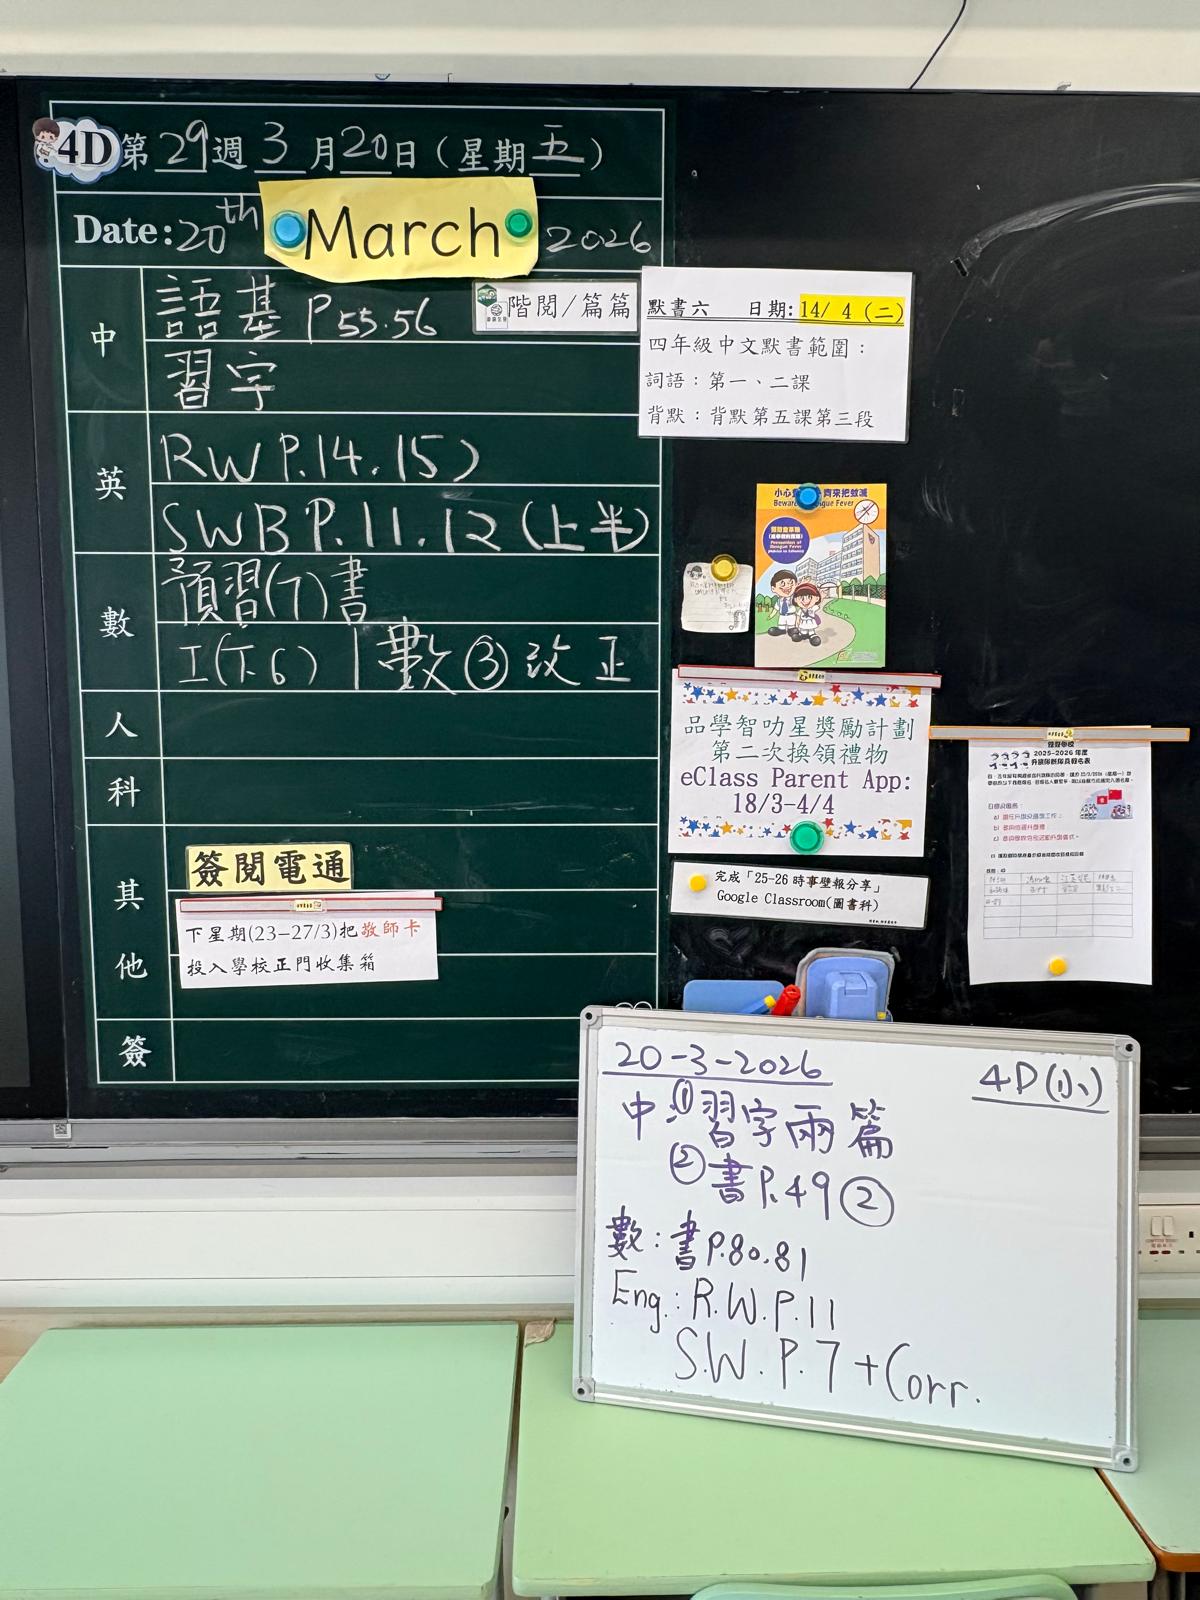 4D 第29週3月20日(星期五)
Date: 20th March 2026
中
語基 P55.56
階閱/篇篇
習字
英
RW P.14.15)
SWB P.11.12 (上半)
數
預習(7)書
工(下6) | 數③改正
人
科
其
他
簽閱電通
下星期(23-27/3)把敬師卡
投入學校正門收集箱
簽
默書六 日期:14/ 4 (二)
四年級中文默書範圍:
詞語:第一、二課
背默:背默第五課第三段
品學智叻星獎勵計劃
第二次換領禮物
eClass Parent App:
18/3-4/4
完成「25-26時事壁報分享」
Google Classroom(圖書科)
2025-2026年度
20-3-2026
4D(小)
中:①習字兩篇
②書P.49②
數:書P.80.81
Eng.: R.W.P.11
S.W.P.7+Corr.